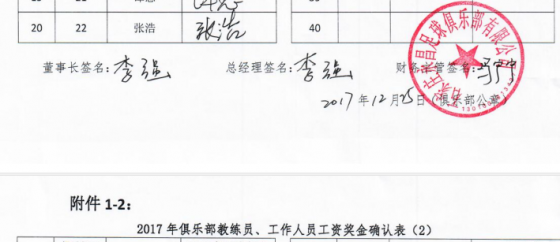 20 22 张浩 张浩 40
董事长签名：李强 总经理签名：李强 财务主管签名：
2017年12月25日（俱乐部公章）
附件 1-2：
2017 年俱乐部教练员、工作人员工资奖金确认表（2）